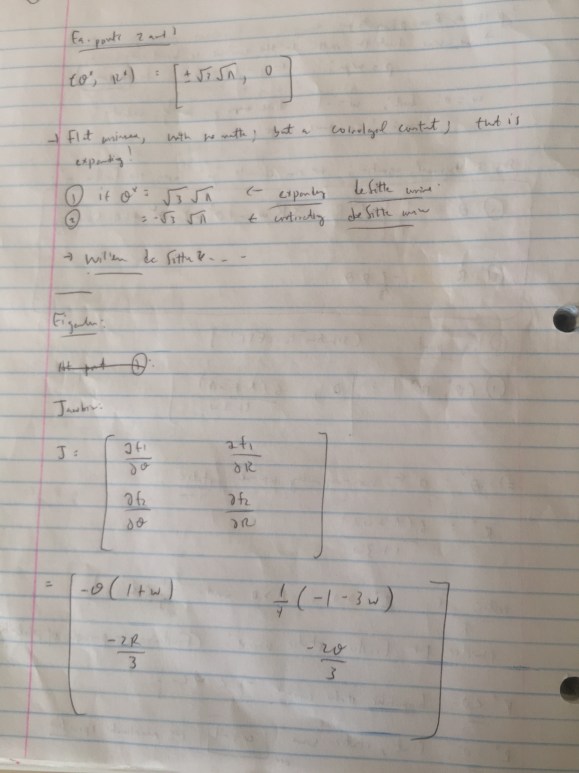 Eq. points 2 and 1
(θ*, R*) = [±√3 √Λ, 0]
→ Flat universe, with no matter, but a cosmological constant, that is
expanding!
① if θ* = √3 √Λ ← expanding de Sitter universe
② = -√3 √Λ ← contracting de Sitter universe
→ de Sitter - - -
Eigenvalues:
At point ②:
Jacobian:
J = [ ∂f₁/∂θ ∂f₁/∂R
∂f₂/∂θ ∂f₂/∂R ]
= [ -θ(1+w) 1/4 (-1-3w)
-2R/3 -2θ/3 ]